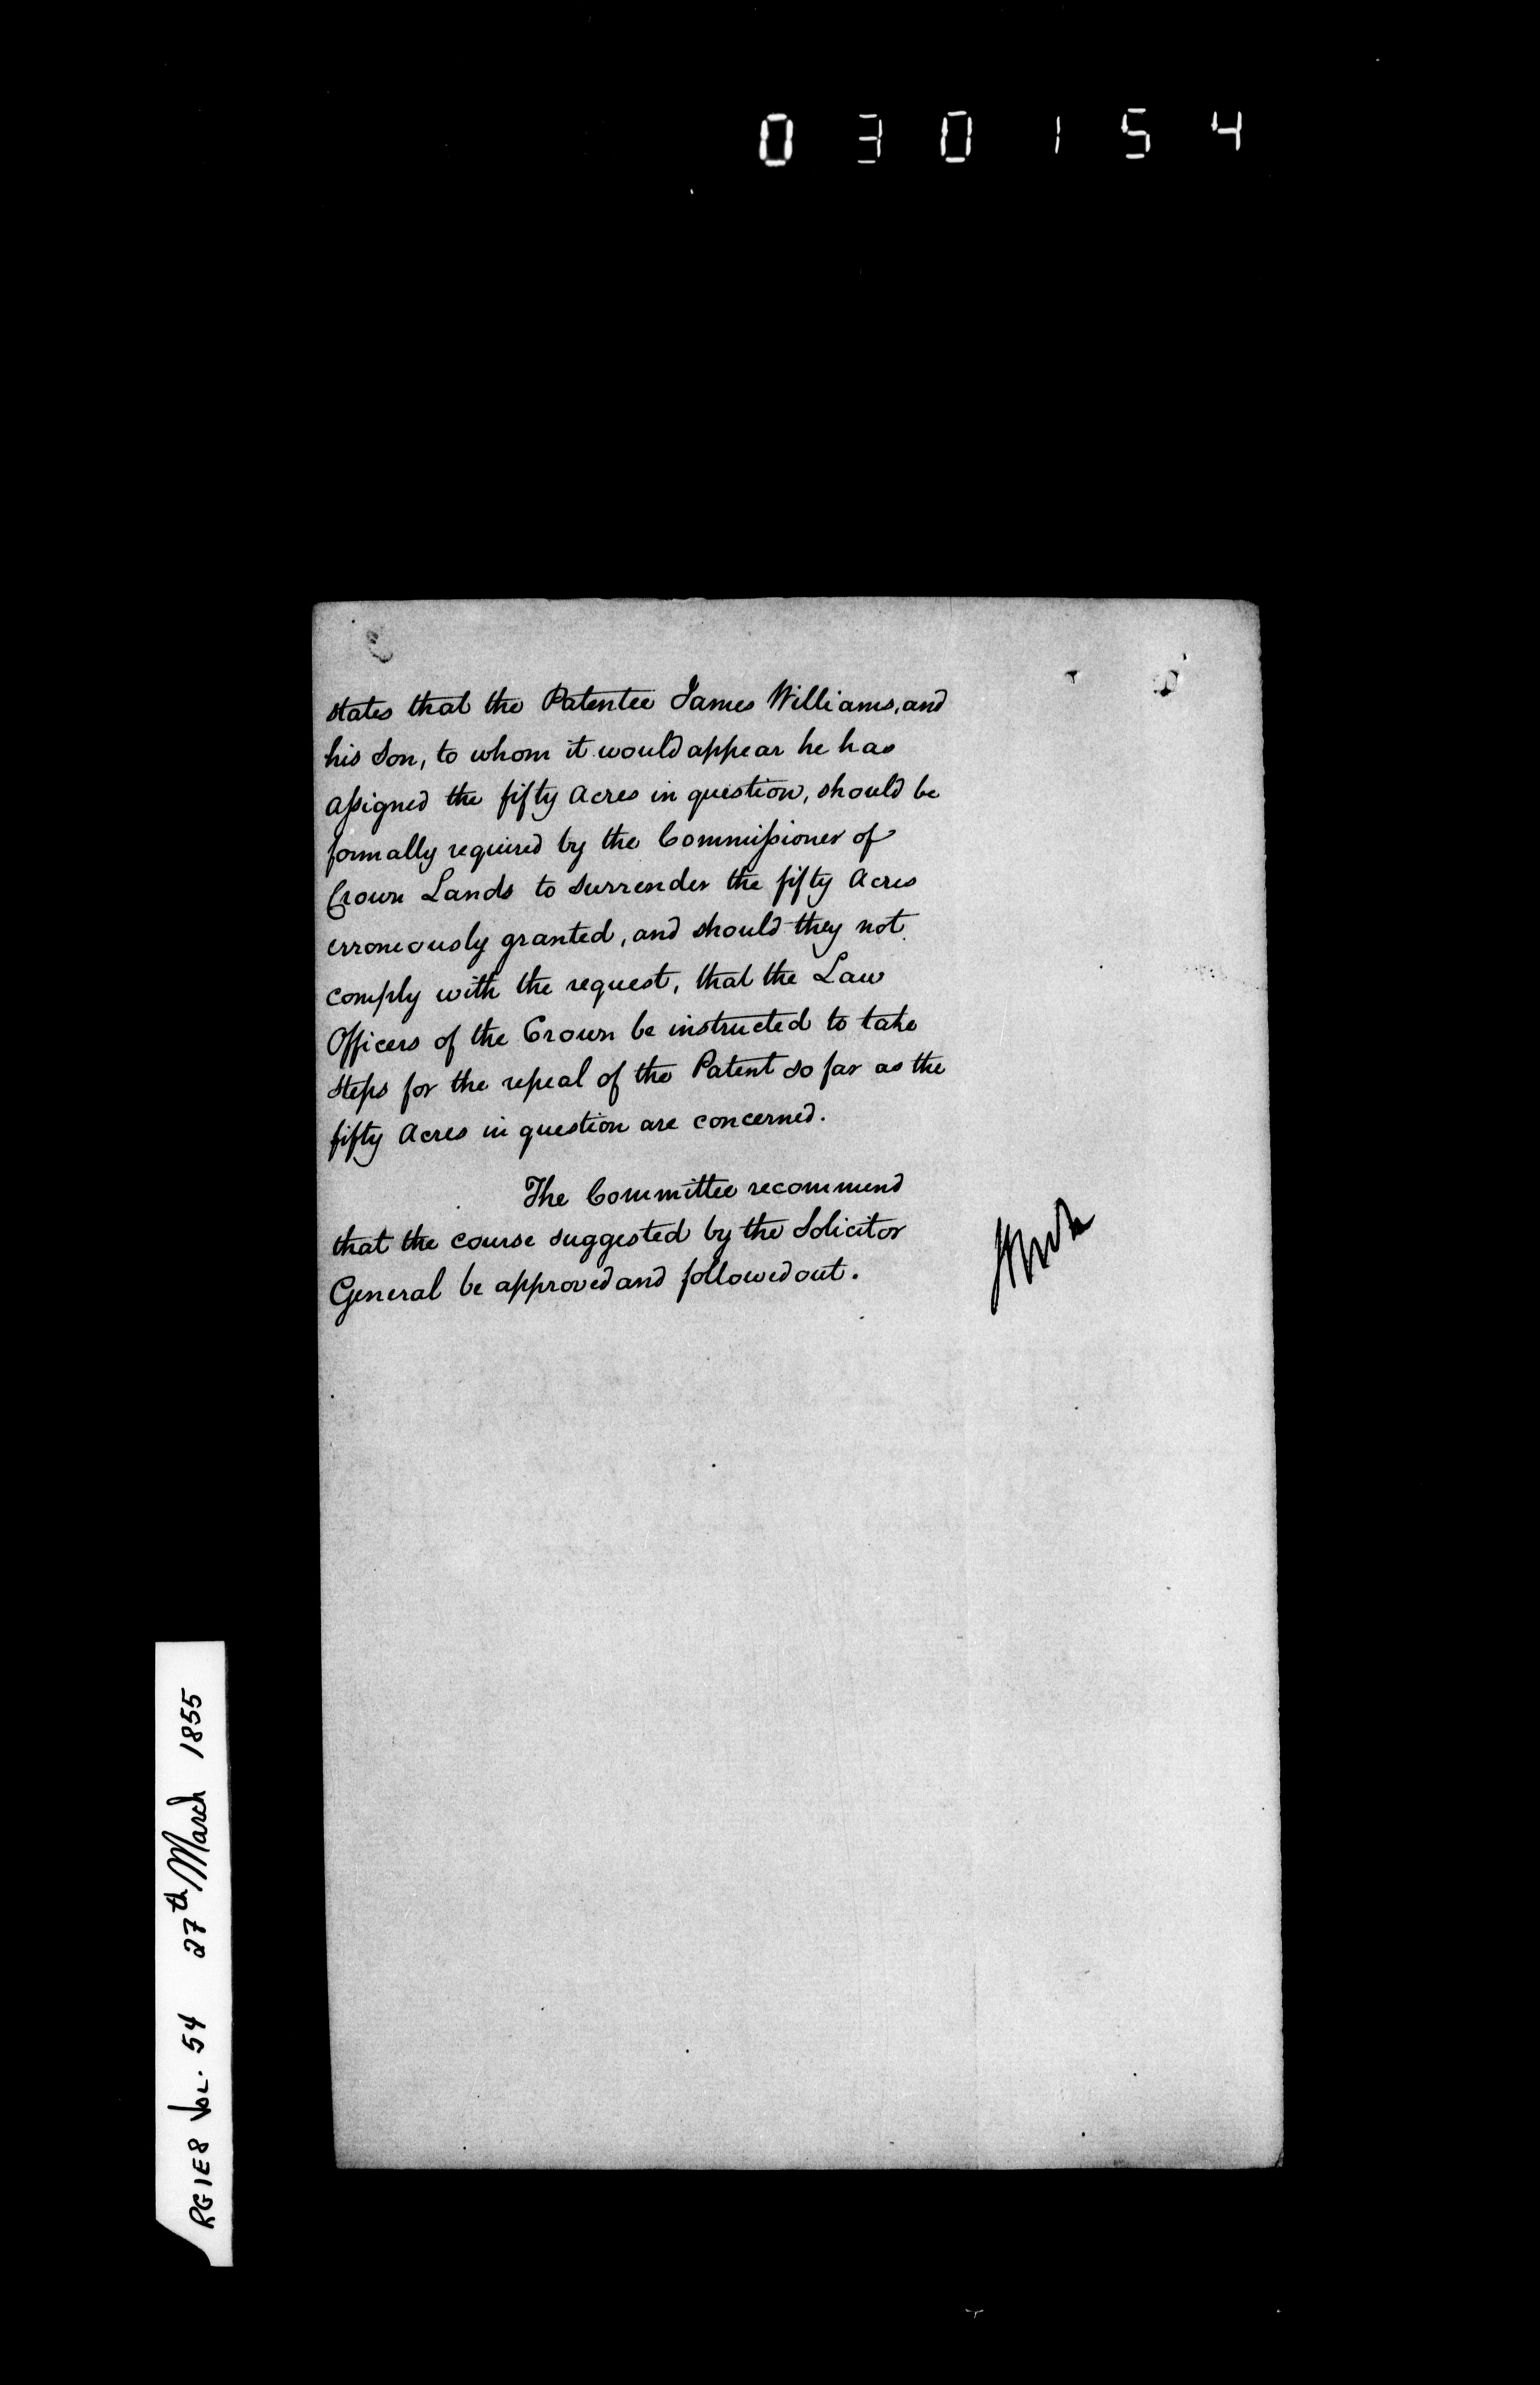 030154
states that the Patentee James Williams, and
his Son, to whom it would appear he has
assigned the fifty Acres in question, should be
formally required by the Commissioner of
Crown Lands to surrender the fifty Acres
erroneously granted, and should they not
comply with the request, that the Law
Officers of the Crown be instructed to take
steps for the repeal of the Patent so far as the
fifty Acres in question are concerned.
The Committee recommend
that the course suggested by the Solicitor
General be approved and followed out.
RG1E8 VOL. 54 27th March 1855